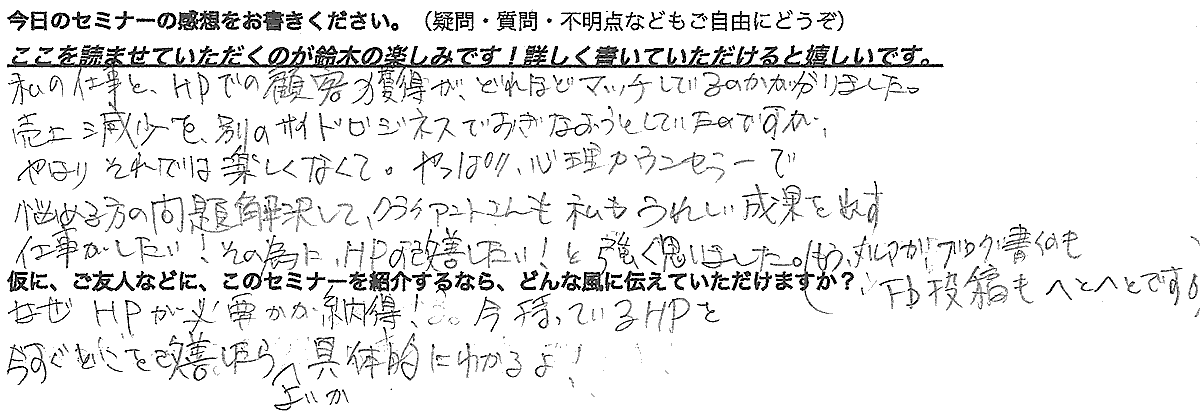 今日のセミナーの感想をお書きください。（疑問・質問・不明点などもご自由にどうぞ）
ここを読ませていただくのが鈴木の楽しみです！詳しく書いていただけると嬉しいです。
私の仕事と、HPでの顧客獲得が、どれほどマッチしているのかが分りました。
売上減少を、別のサイドビジネスでおぎなおうとしていたのですが、
やはりそれでは楽しくなくて。やっぱり、心理カウンセラーで
悩める方の問題解決して、クライアントさんも私もうれしい成果を出す
仕事がしたい！その為に、HPの改善したい！と強く思いました。(もう、メルマガ、ブログ書くのも
FB投稿もへとへとです。)
仮に、ご友人などに、このセミナーを紹介するなら、どんな風に伝えていただけますか？
なぜHPが必要かが納得！。今持っているHPを
今すぐどこを改善したらよいか具体的にわかるよ！